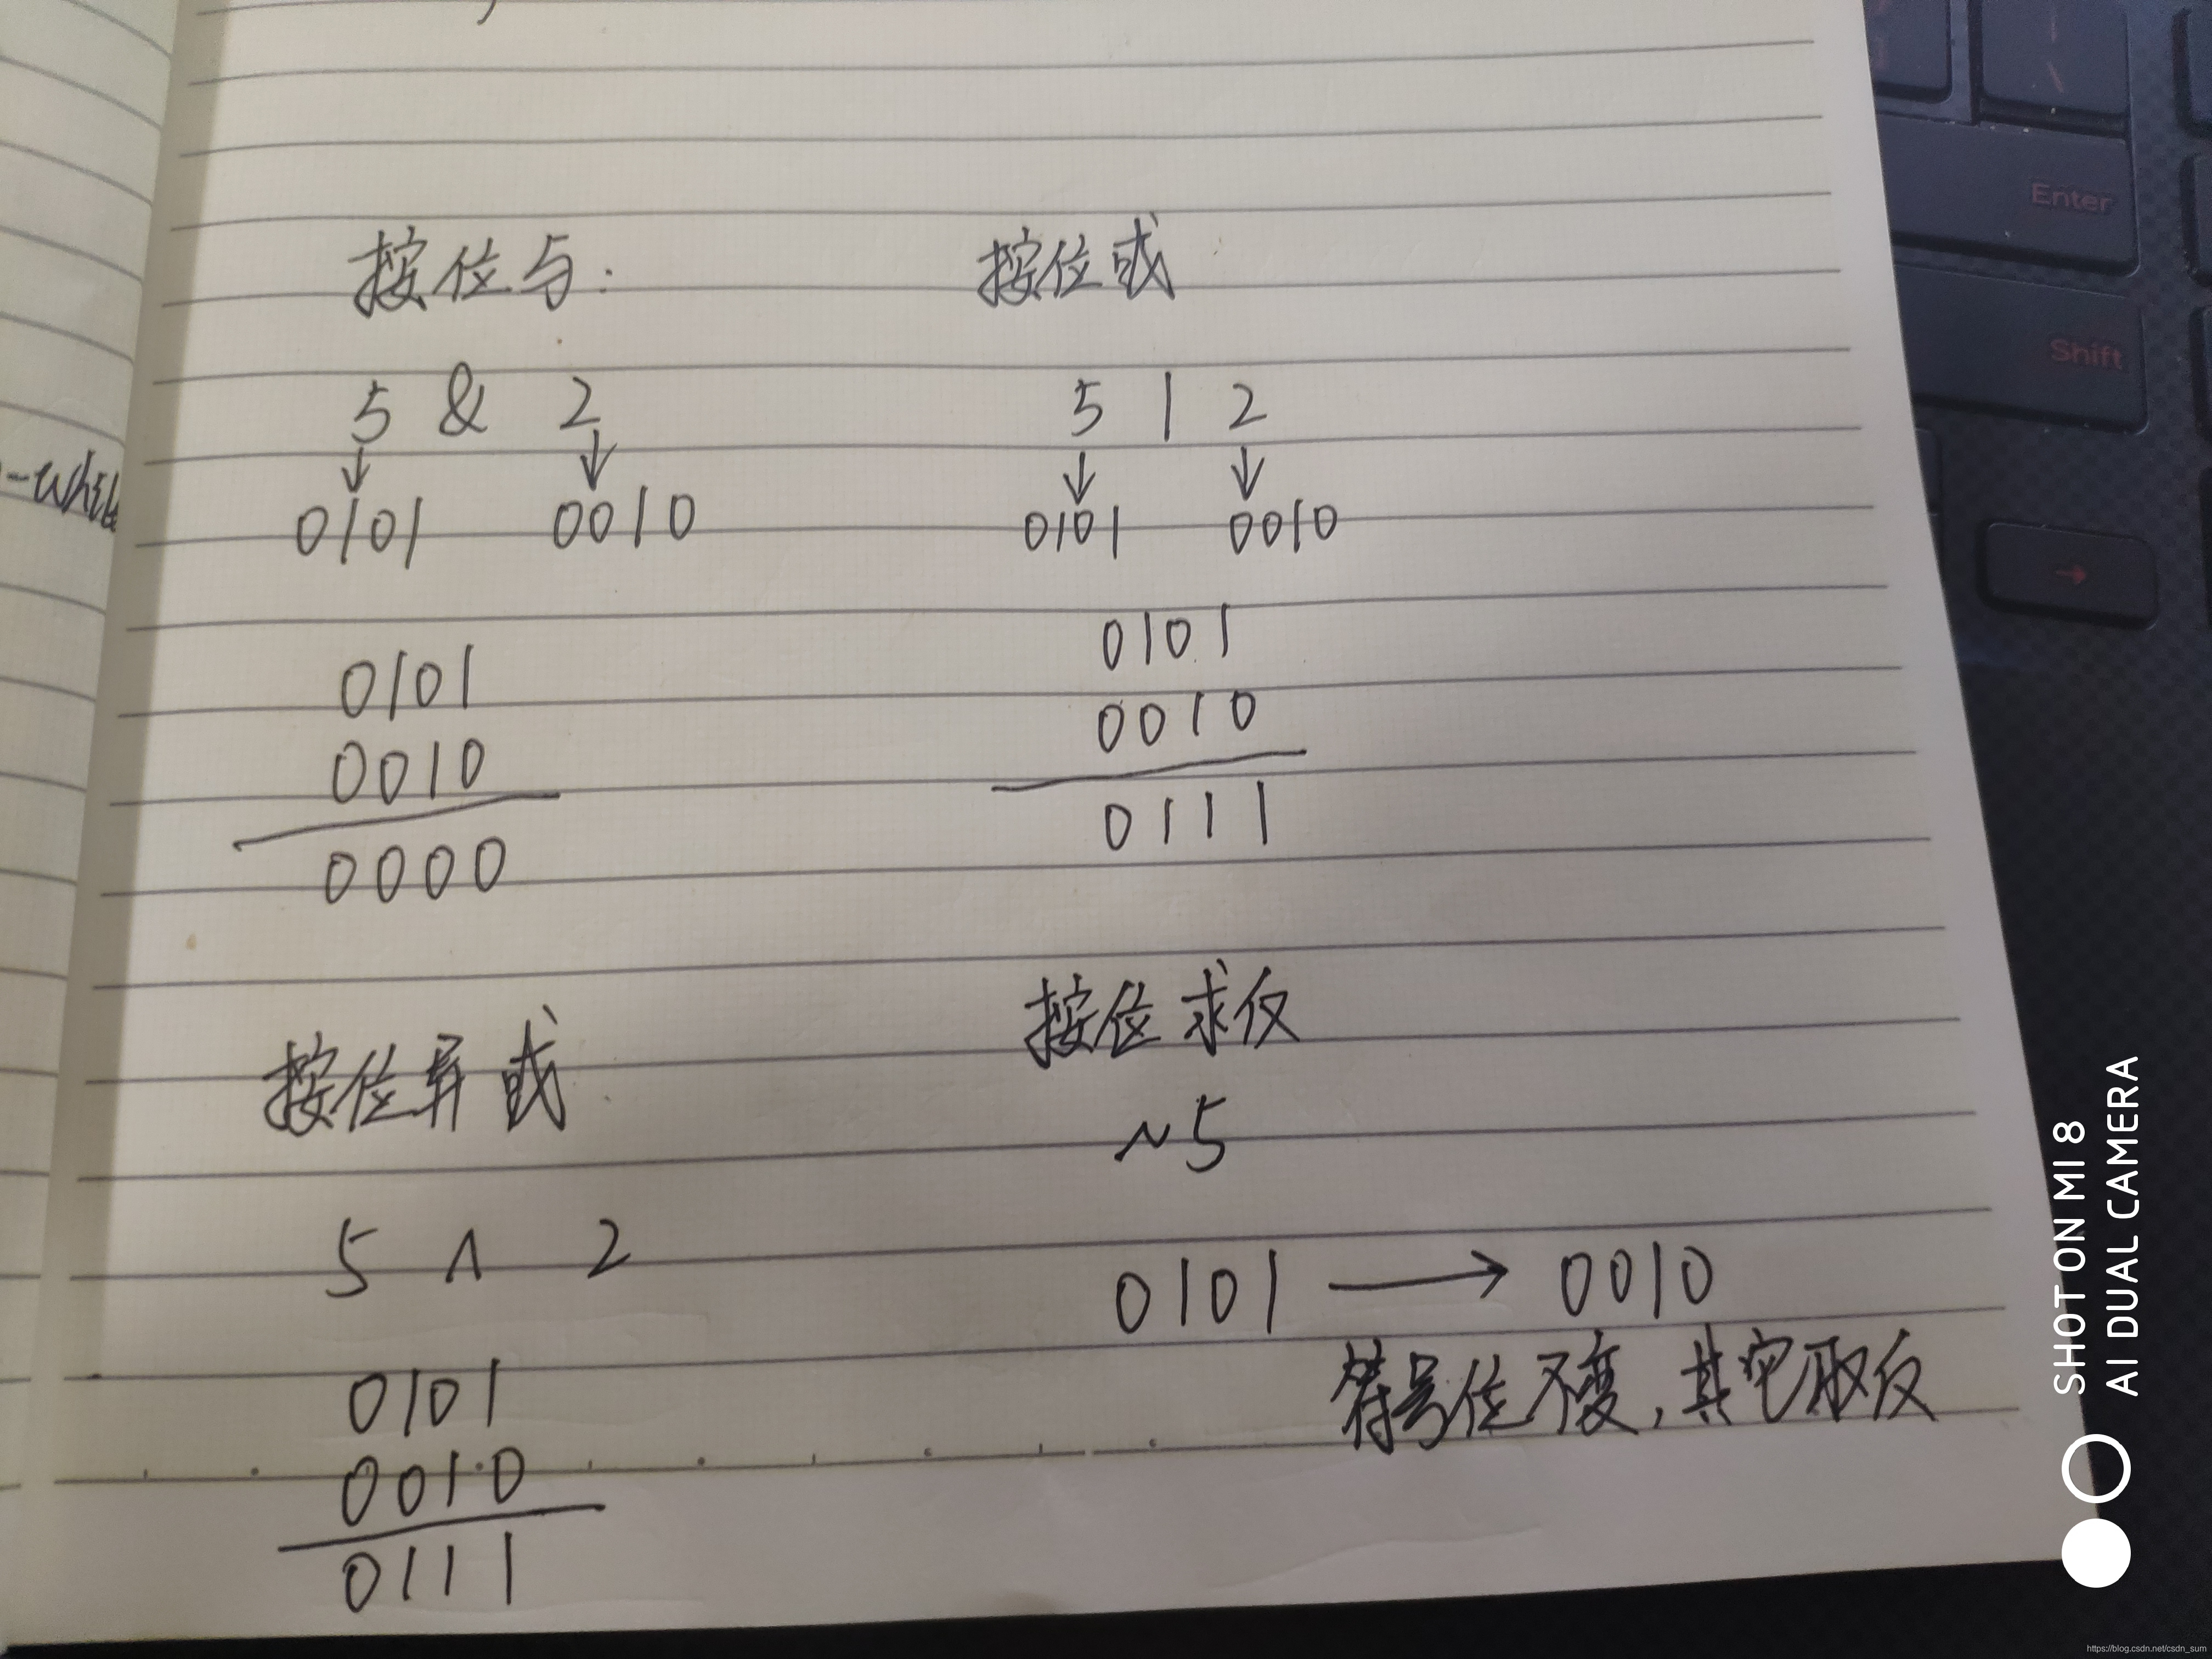 按位与:
5 & 2
0101 0010
0101
0010
0000
按位或
5 | 2
0101 0010
0101
0010
0111
按位异或
5 ∧ 2
0101
0010
0111
按位求反
~5
0101 → 0010
符号位不变,其它取反
Enter
Shift
→
SHOT ON MI 8
AI DUAL CAMERA
https://blog.csdn.net/csdn_sum